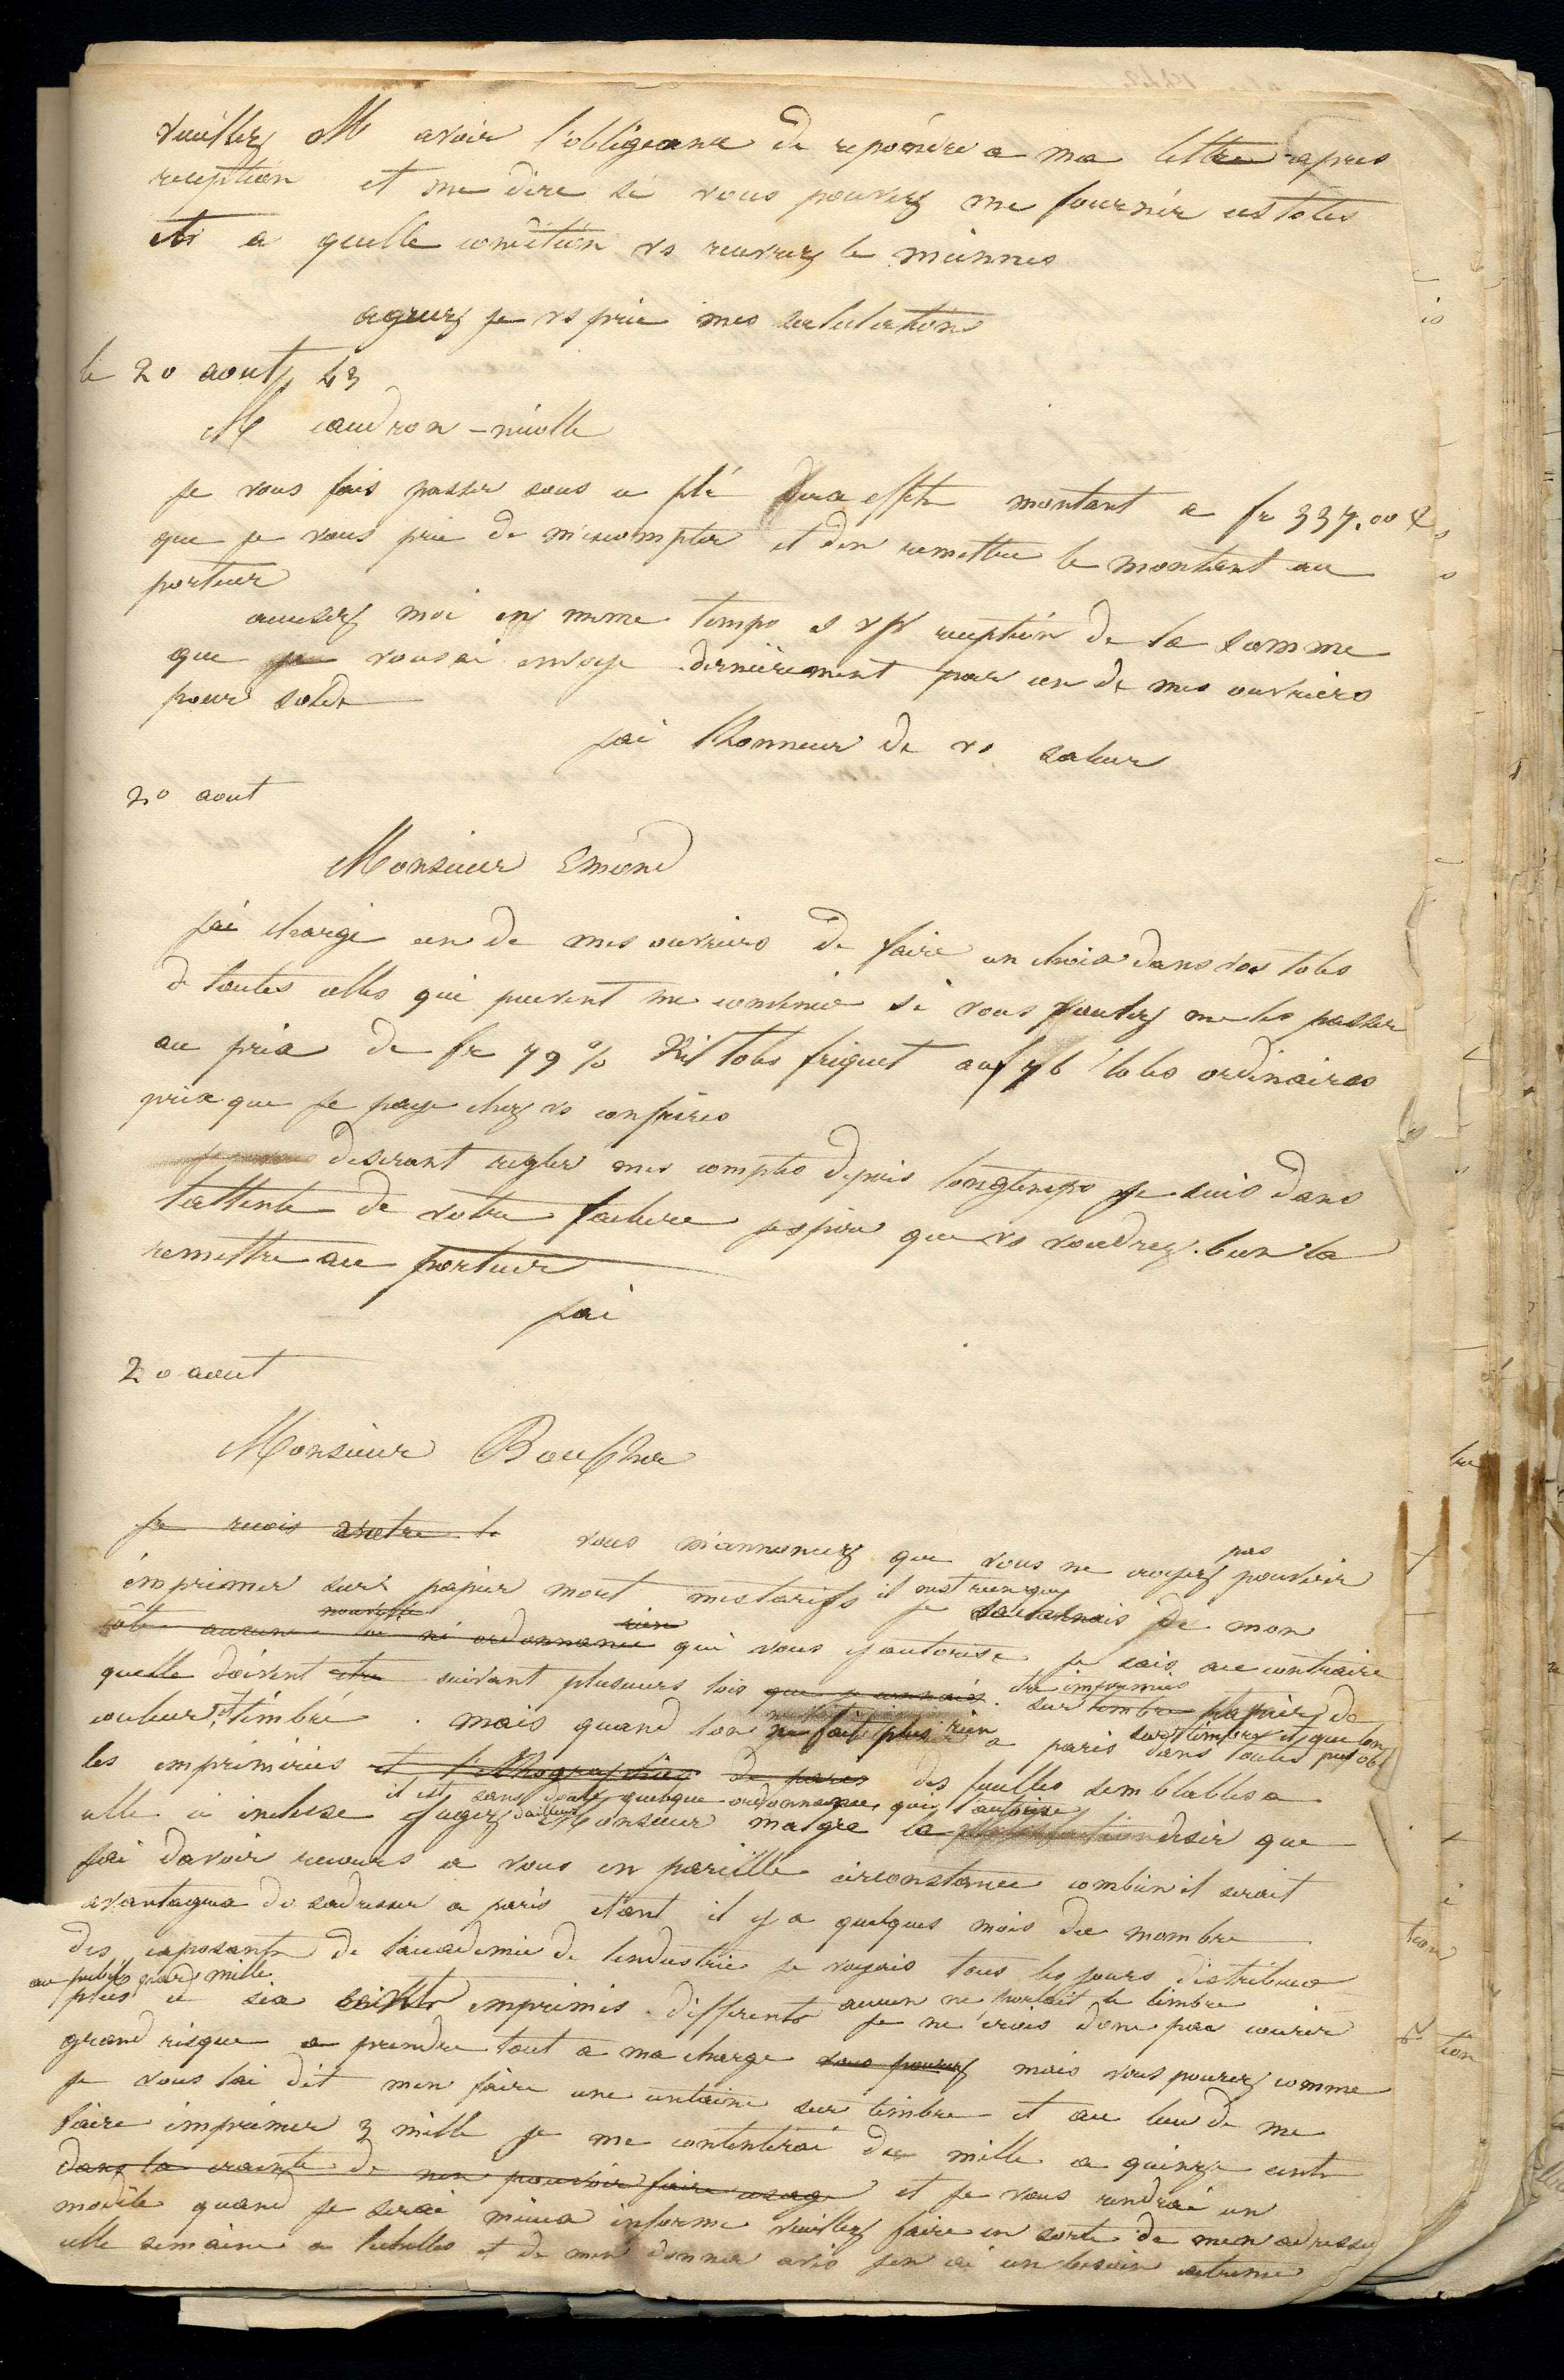 veuillez M avoir l'obligeance de repondre a ma lettre apres
reception et me dire si vous pouvez me fournir ces toles
et a quelle condition vs recevrez le miennes
agreez je vs prie mes salutations
le 20 aout 43
M caudron-nicolle
je vous fais passer sous ce pli deux effets montant a fr 337.00
que je vous prie de m'escompter et d'en remettre le montant au
porteur
accusez moi en meme temps s v p reception de la somme
que je vous ai envoye dernierement par un de mes ouvriers
pour solde
jai l'honneur de vs saluer
20 aout
Monsieur Emond
jai chargé un de mes ouvriers de faire un choix dans vos toles
de toutes celles qui peuvent me convenir si vous voulez me les passer
au prix de fr 79 % toles friquet 76 toles ordinaires
prix que je paye chez vs confrères
desirant regler mes comptes depuis longtemps je suis dans
lattente de votre facture jespere que vs voudrez bien la
remettre au porteur
jai
20 aout
Monsieur
je recois votre le vous m'annoncez que vous ne croyez pas pouvoir
imprimer sur papier mort mes tarifs il nest rien que je connais de mon
coté aucune nouvelle loi ni ordonnance rien qui vous y autorise je sais au contraire
quelle doivent etre suivant plusieurs lois que je connais etre imprimies sur timbre papier de
couleur et timbré . mais quand lon ne fait plus rien a paris sur timbre et que lon
les imprimeries et lithographies de paris dans toutes des feuilles semblables a
il est sans doute quelque ordonnance qui l'autorise
celle ci incluse jugez dailleurs Monsieur malgre la desir que
jai davoir recours a vous en pareille circonstance combien il serait
avantageux de sadresser a paris etant il y a quelques mois du nombre
des exposants de l'academie de lindustrie je voyais tous les jours distribuer
au public par mille
plus de six cents imprimés differents aucun ne portait le timbre je ne crois donc pas courir
grand risque a prendre tout a ma charge vous pourez mais vous pourez comme
je vous lai dit men faire une centaine sur timbre et au lieu de me
faire imprimer 3 mille je me contenterai de mille a quinze cents
dans la crainte de nen pouvoir faire usage et je vous rendrai un
modele quand je serai mieux informe veuillez faire en sorte de men adresser
cette semaine a et de men donner avis jen ai un besoin extreme